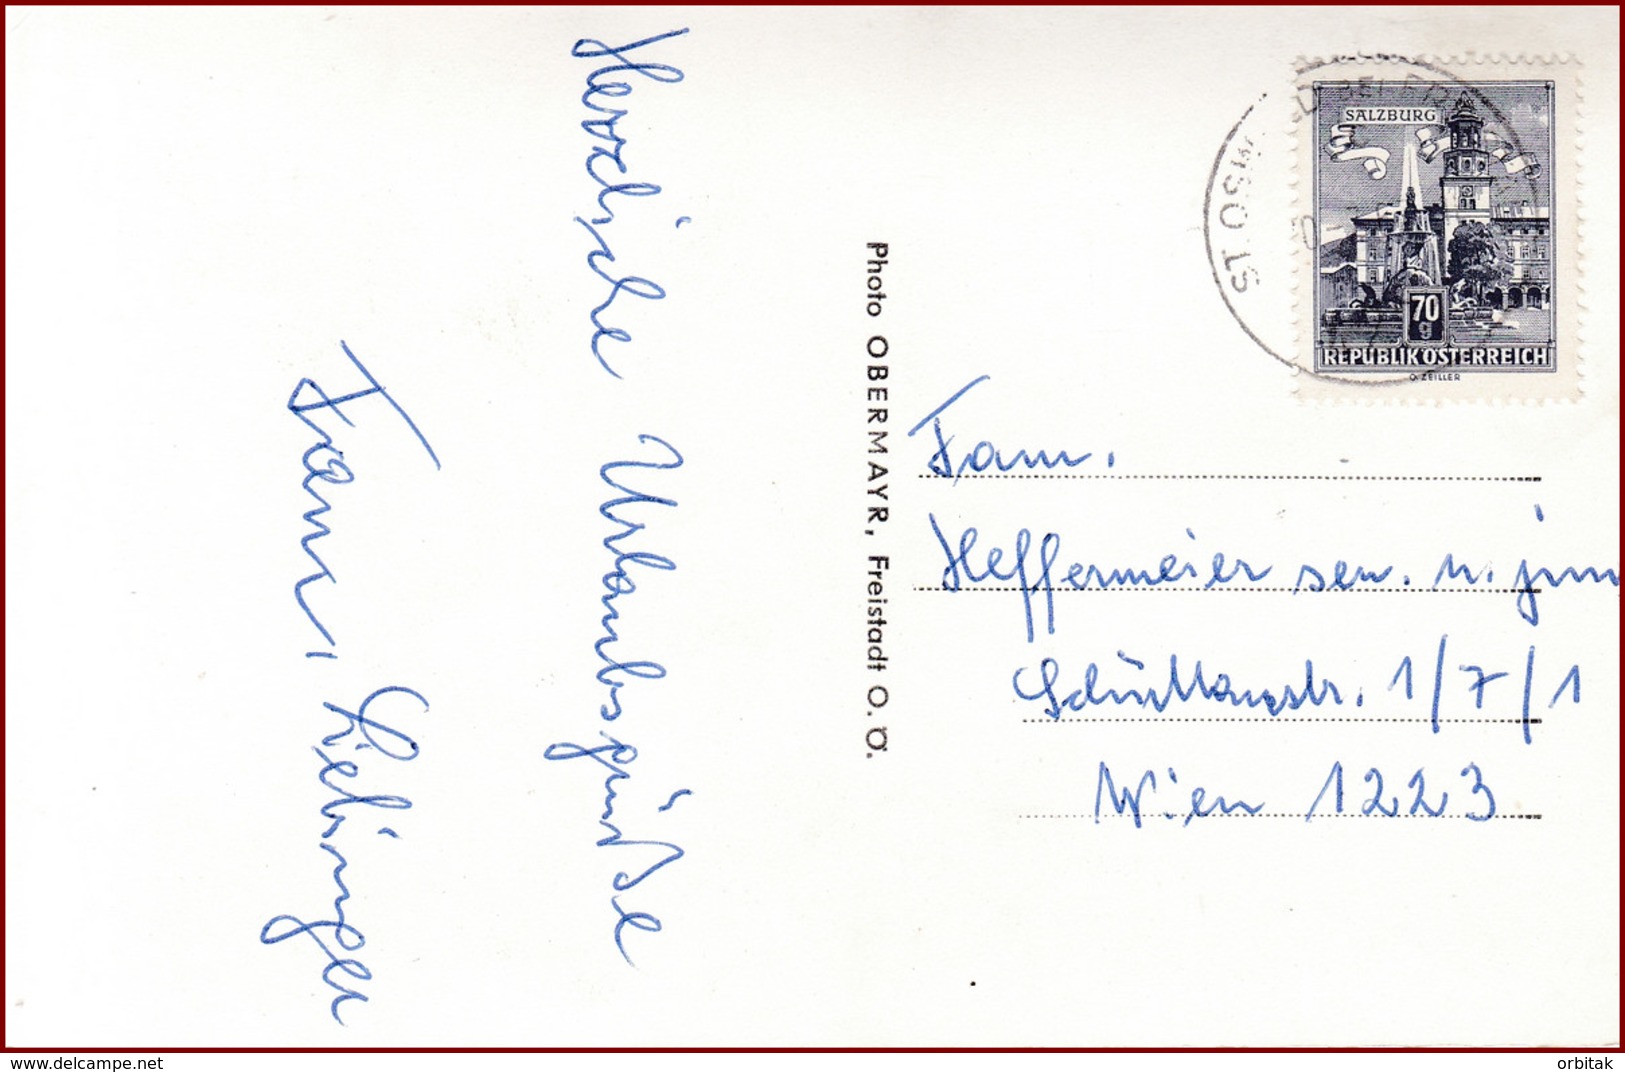 Herzliche Urlaubsgrüße
Fam. Liebinger
Photo OBERMAYR, Freistadt O. Ö.
ST. OSWALD BEI FR
SALZBURG
70
g
REPUBLIK ÖSTERREICH
O. ZEILLER
Fam.
Heffermeier sen. u. jun
1/7/1
Wien 1223
www.delcampe.net
orbitak